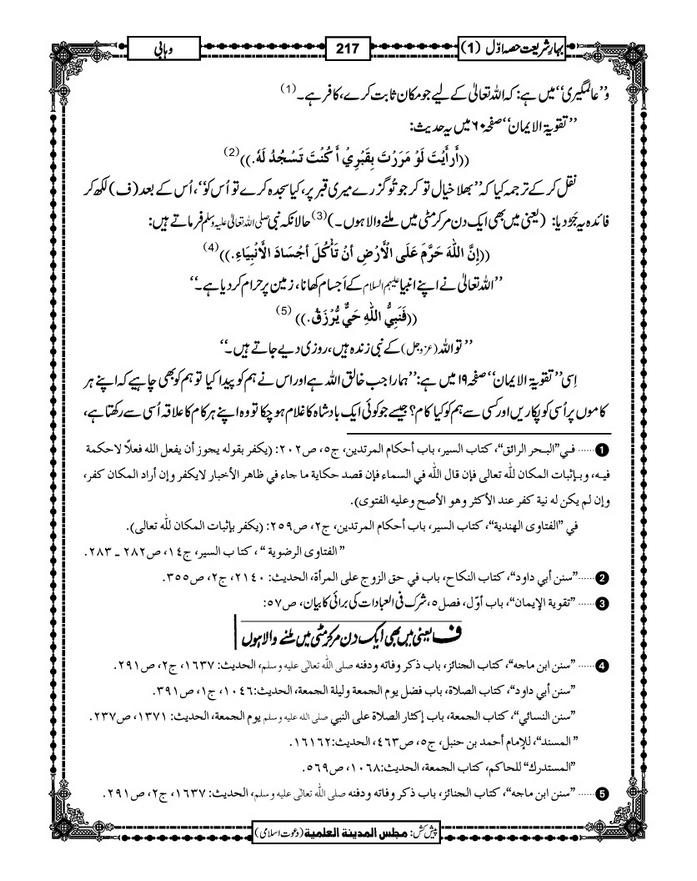 بہارِشریعت حصہ اوّل (1)
217
وہابی
و’’عالمگیری‘‘ میں ہے: کہ اللہ تعالیٰ کے لیے جو مکان ثابت کرے، کافر ہے۔ (1)
’’تقویۃ الایمان‘‘ صفحہ ۶۰ میں یہ حدیث:
((أَرأَيْتَ لَوْ مَرَرْتَ بِقَبْرِيْ أَكُنْتَ تَسْجُدُ لَهُ.)) (2)
نقل کر کے ترجمہ کیا کہ ’’بھلا خیال تو کر جو تُو گزرے میری قبر پر، کیا سجدہ کرے تو اُس کو‘‘، اُس کے بعد (ف) لکھ کر
فائدہ یہ جَڑ دیا: (یعنی میں بھی ایک دن مرکر مٹی میں ملنے والا ہوں۔) (3) حالانکہ نبی صلی اللہ تعالیٰ علیہ وسلم فرماتے ہیں:
((إِنَّ اللّٰهَ حَرَّمَ عَلَى الْأَرْضِ أَنْ تَأْكُلَ أَجْسَادَ الْأَنْبِيَاءِ.)) (4)
’’اللہ تعالیٰ نے اپنے انبیا علیہم السلام کے اَجسام کھانا، زمین پر حرام کر دیا ہے۔‘‘
((فَنَبِيُّ اللّٰهِ حَيٌّ يُّرْزَقُ.)) (5)
’’تو اللہ (عزوجل) کے نبی زندہ ہیں، روزی دیے جاتے ہیں۔‘‘
اِسی ’’تقویۃ الایمان‘‘ صفحہ ۱۹ میں ہے: ’’ہمارا جب خالق اللہ ہے اور اس نے ہم کو پیدا کیا تو ہم کو بھی چاہیے کہ اپنے ہر
کاموں پر اُسی کو پکاریں اور کسی سے ہم کو کیا کام؟ جیسے جو کوئی ایک بادشاہ کا غلام ہو چکا تو وہ اپنے ہر کام کا علاقہ اُسی سے رکھتا ہے،
1 ...... في ”البحر الرائق“، كتاب السير، باب أحكام المرتدين، ج٥، ص٢٠٢: (يكفر بقوله يجوز أن يفعل الله فعلًا لاحكمة
فيه، وبإثبات المكان للّٰه تعالى فإن قال اللّٰه في السماء فإن قصد حكاية ما جاء في ظاهر الأخبار لايكفر وإن أراد المكان كفر،
وإن لم يكن له نية كفر عند الأكثر وهو الأصح وعليه الفتوى).
في ”الفتاوى الهندية“، كتاب السير، باب أحكام المرتدين، ج٢، ص٢٥٩: (يكفر بإثبات المكان للّٰه تعالى).
”الفتاوى الرضوية“، كتاب السير، ج١٤، ص٢٨٢ ـ ٢٨٣.
2 ......”سنن أبي داود“، كتاب النكاح، باب في حق الزوج على المرأة، الحديث: ٢١٤٠، ج٢، ص٣٥٥.
3 ......”تقوية الإيمان“، باب أوّل، فصل٥، شرک فی العبادات کی برائی کا بیان، ص٥٧:
ف یعنی میں بھی ایک دن مرکر مٹی میں ملنے والا ہوں
4 ...... ”سنن ابن ماجه“، كتاب الجنائز، باب ذكر وفاته ودفنه صلى اللّٰه تعالى عليه وسلم، الحديث: ١٦٣٧، ج٢، ص٢٩١.
”سنن أبي داود“، كتاب الصلاة، باب فضل يوم الجمعة وليلة الجمعة، الحديث:١٠٤٦، ج١، ص٣٩١.
”سنن النسائي“، كتاب الجمعة، باب إكثار الصلاة على النبي صلى اللّٰه عليه وسلم يوم الجمعة، الحديث: ١٣٧١، ص٢٣٧.
”المسند“، للإمام أحمد بن حنبل، ج٥، ص٤٦٣، الحديث:١٦١٦٢.
”المستدرك“ للحاكم، كتاب الجمعة، الحديث:١٠٦٨، ص٥٦٩.
5 ...... ”سنن ابن ماجه“، كتاب الجنائز، باب ذكر وفاته ودفنه صلى اللّٰه تعالى عليه وسلم، الحديث: ١٦٣٧، ج٢، ص٢٩١.
پیش کش: مجلس المدینۃ العلمیۃ (دعوت اسلامی)